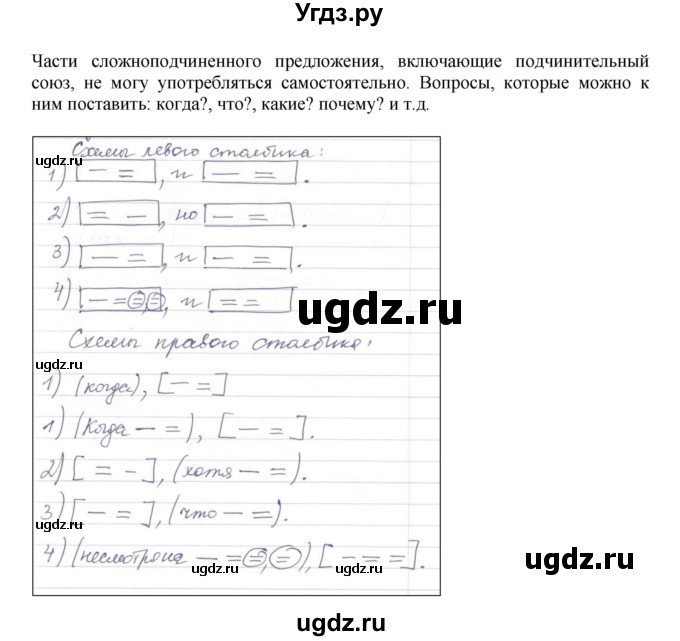 Угдз.ру
Части сложноподчиненного предложения, включающие подчинительный
союз, не могу употребляться самостоятельно. Вопросы, которые можно к
ним поставить: когда?, что?, какие? почему? и т.д.
Схемы левого столбика:
1) [— =], и [— =].
2) [= —], но [— =].
3) [— =], и [— =].
4) [— = = =], и [= =]
Схемы правого столбика:
1) (когда), [— =]
1) (Когда — =), [— =].
2) [= -], (хотя — =).
3) [— =], (что — =).
4) (несмотря на — = =, =), [— = =].
ugdz.ru
ugdz.ru
ugdz.ru
ugdz.ru
ugdz.ru
ugdz.ru
ugdz.ru
ugdz.ru
ugdz.ru